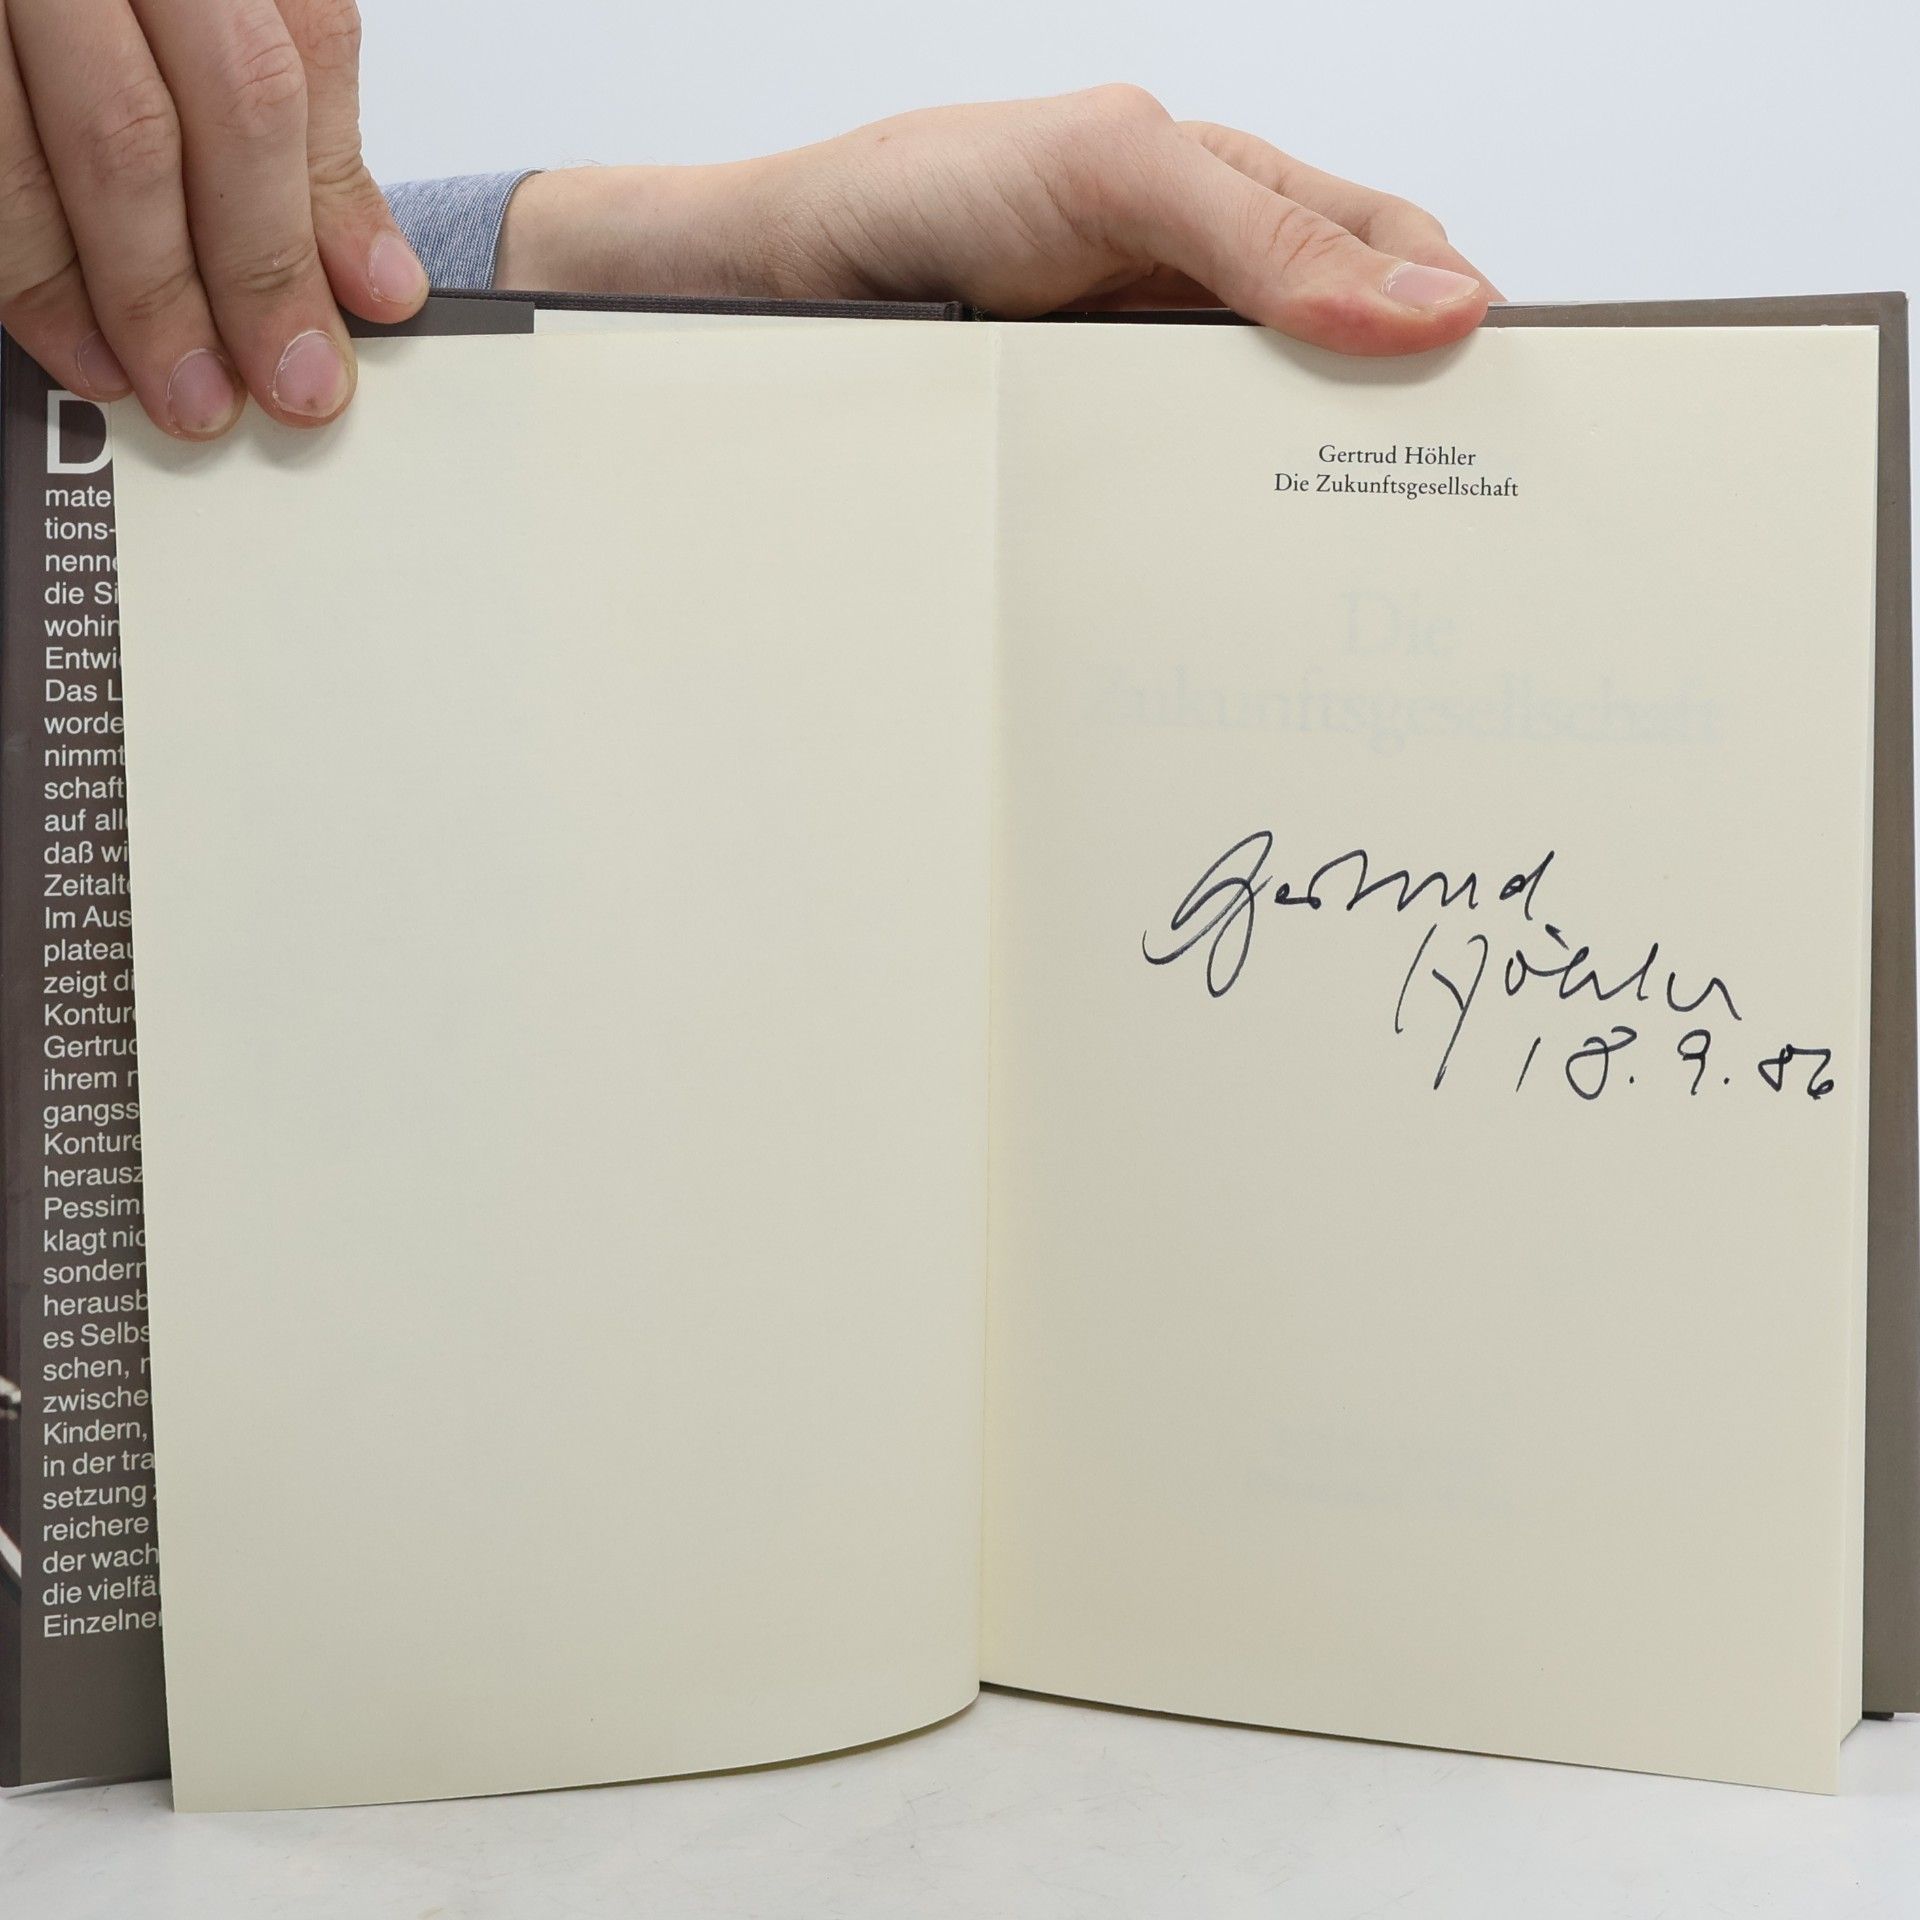 D
mate
tions-
nenne
die Si
wohin
Entwi
Das L
worde
nimmt
schaft
auf all
daß wi
Zeitalt
Im Aus
plateau
zeigt di
Kontur
Gertrud
ihrem
gangss
Konture
herausz
Pessim
klagt nic
sondern
herausb
es Selbs
schen,
zwische
Kindern,
in der tra
setzung
reichere
der wach
die vielfä
Einzelne
Gertrud Höhler
Die Zukunftsgesellschaft
Die
Zukunftsgesellschaft
Gertrud
Höhler
18. 9. 86